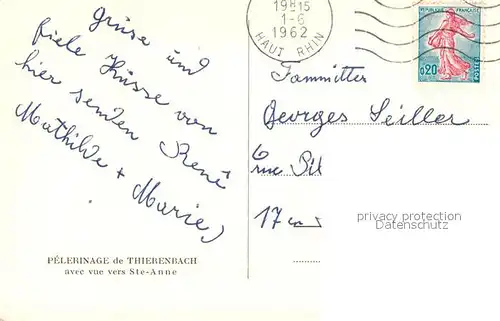 Grüse und
fiele Küsse von
hier senden René
Mathilde + Marie
PÉLERINAGE de THIERENBACH
avec vue vers Ste-Anne
19H15
1-6
1962
HAUT RHIN
REPUBLIQUE FRANÇAISE
0,20
POSTES
Fammitter
Georges Seiller
6 rue
17
privacy protection
Datenschutz